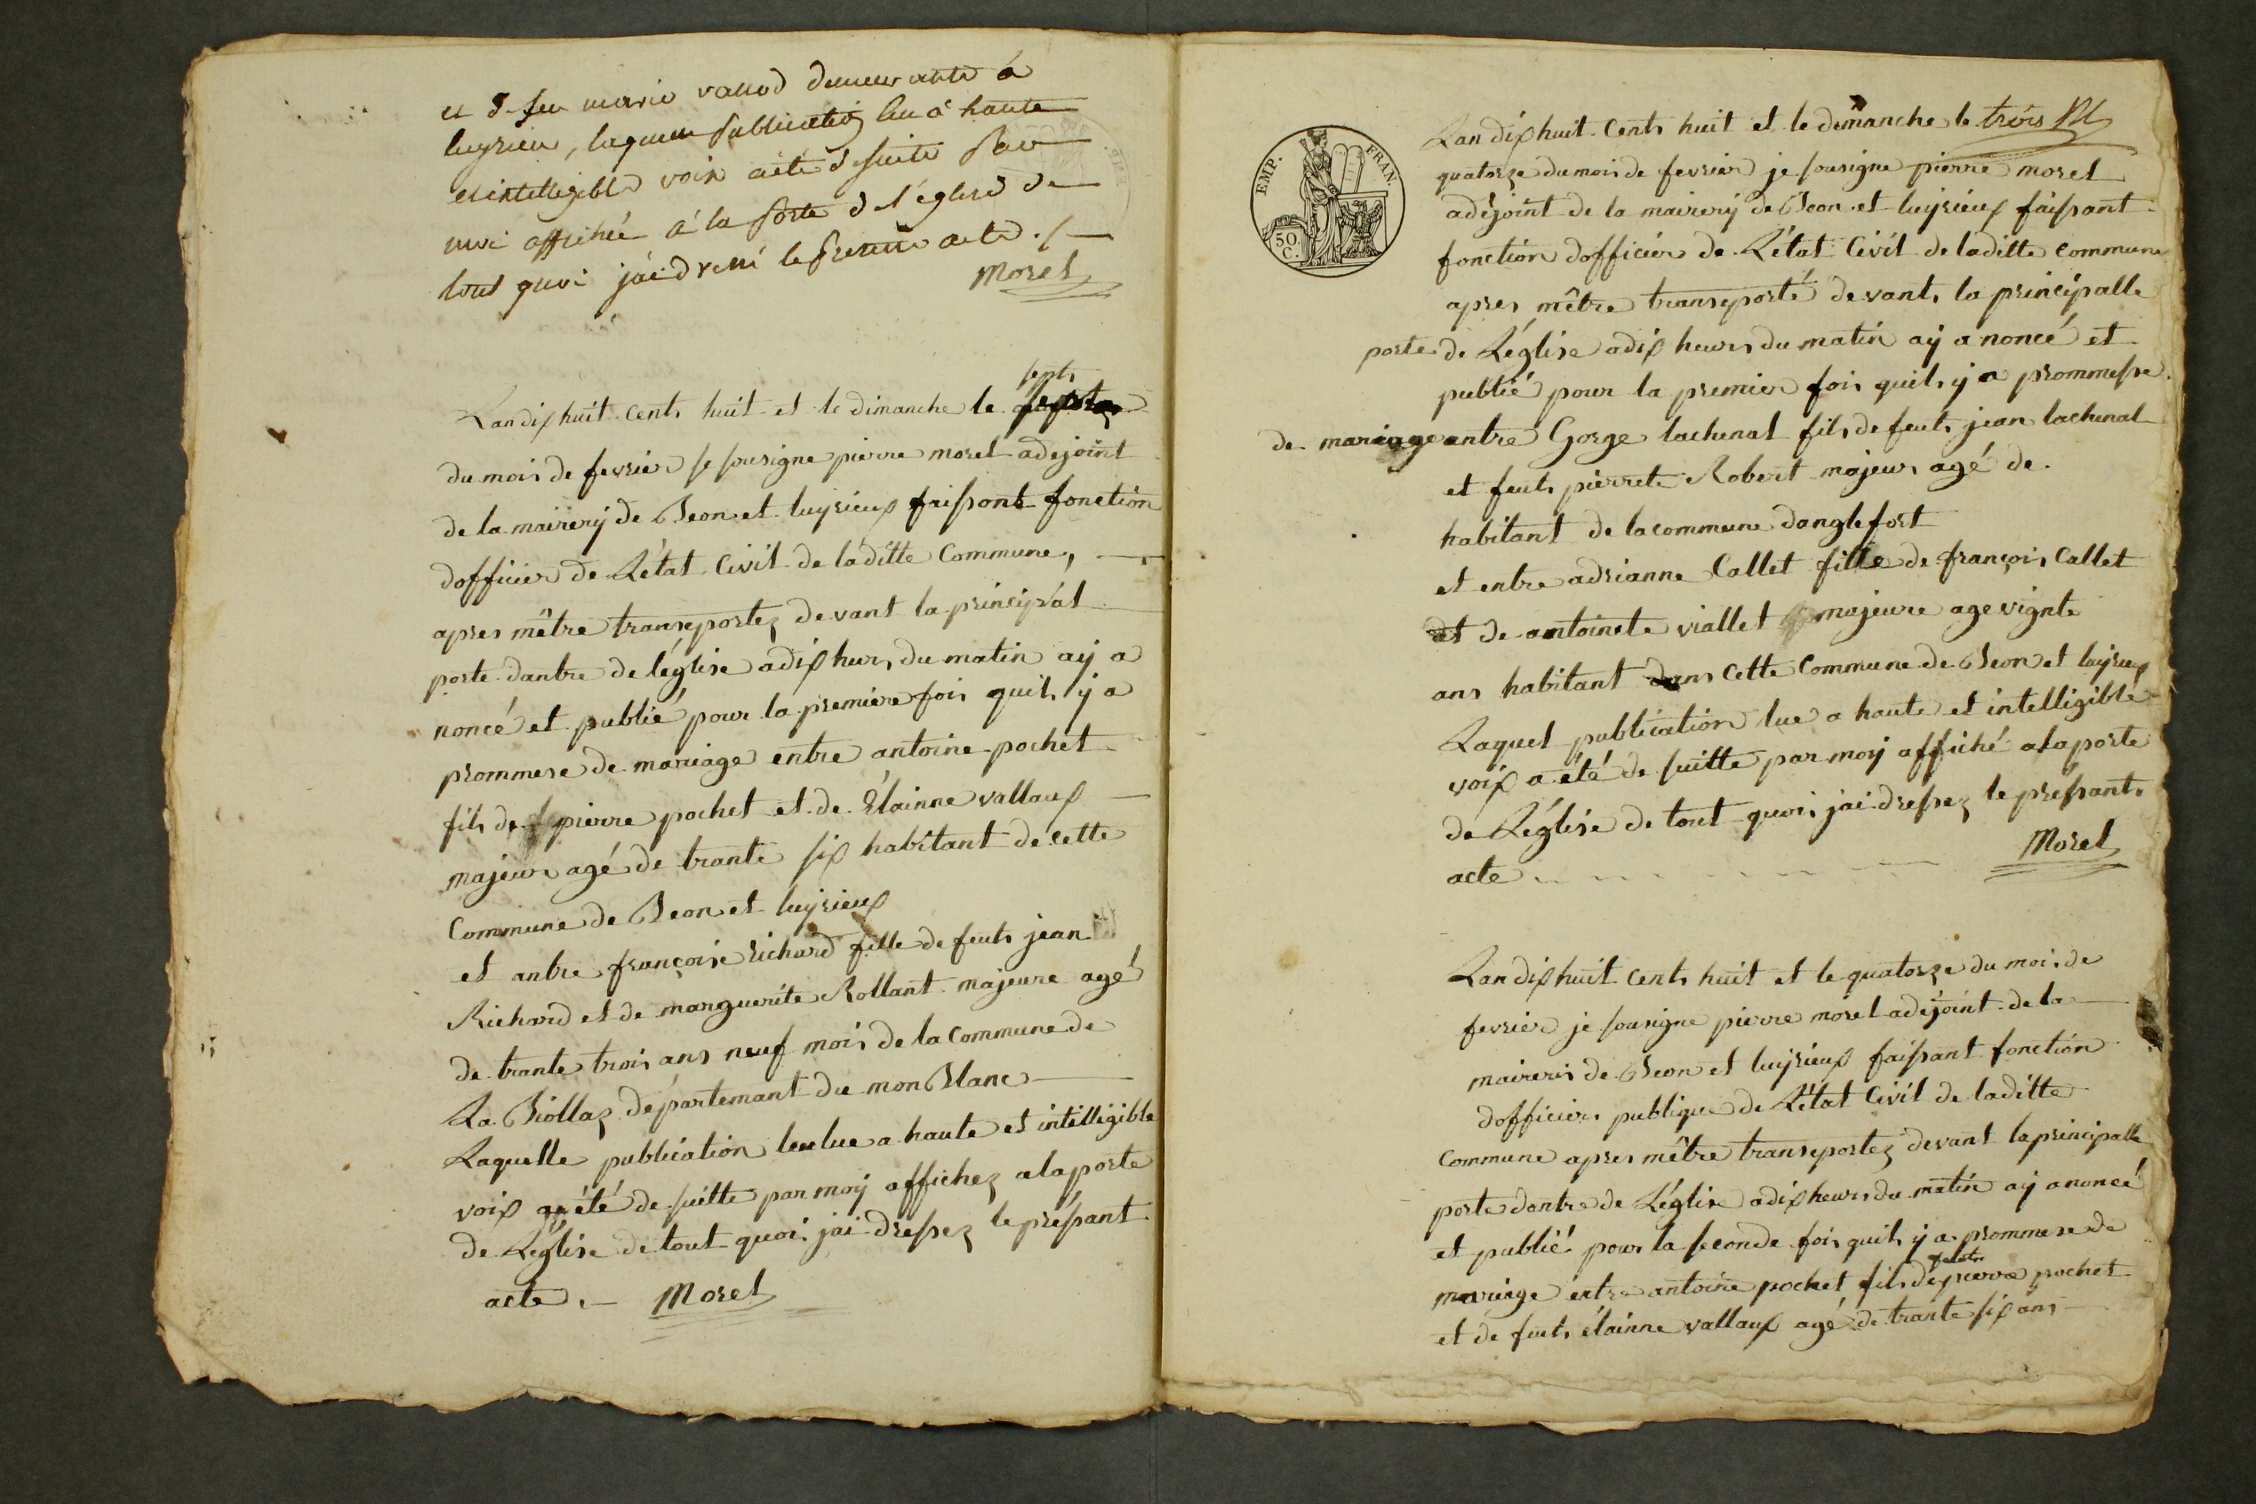 et de feu marie vallod demeurante à
luyrieu, laquelle publication lue à haute
et intelligible voix a été de suite par
moi affichée à la porte de l'église de
tout quoi j'ai dressé le présent acte ./
Morel
Lan dix huit cents huit et le dimanche le sept
du mois de fevrier je sousigne pierre morel adejoint
de la mairery de Beon et luyrieux faissont fonction
dofficier de Létat Civil de laditte Commune,
apres mêtre transportez devant la principal
porte dantre de léglise a dix heurs du matin ay a
noncé et publié pour la premiere fois quils y a
prommese de mariage entre antoine pochet
fils de pierre pochet et de Élainne vallaux
majeur agé de trante six habitant de cette
Commune de Beon et luyrieux
et antre françoise Richard fille de feuts jean
Richard et de marguerite Rollant majeure agé
de trante trois ans neuf mois de la Commune de
La Biollaz départemant du mon Blanc
Laquelle publication lue a haute et intelligible
voix a été de suitte par moy affichez a la porte
de Léglise de tout quoi jai dressez le préssant
acte. Morel
EMP. FRAN.
50 C.
Lan dix huit cents huit et le dimanche le trois
quatorze du mois de fevrier je sousigne pierre morel
adéjoint de la mairery de Beon et luyrieux faissant
fonction dofficier de Létat Civil de laditte commune
apres mêtre transeporté devant la principalle
porte de Léglise a dix heurs du matin ay a noncé et
publié pour la premier fois quils y a prommesse
de mariage antre Gorge lachenal fils de feuts jean lachenal
et feuts pierrete Robert majeur agé de
habitant de la commune danglefort
et entre adrianne Callet fille de françois Callet
et de antoinete viallet majeure age vignte
ans habitant dans cette Commune de Beon et luyrieux
Laquel publication lue a haute et intelligible
voix a été de suitte par moy affiché a la porte
de Léglise de tout quoi jai dressez le préssant
acte Morel
Lan dix huit cents huit et le quatorze du mois de
fevrier je sousigne pierre morel adéjoint de la
maireri de Beon et luyrieux faissant fonction
dofficier publique de Létat Civil de laditte
Commune apres mêtre transeportez devant la principalle
porte dontre de Léglise a dix heurs du matin ay a noncé
et publié pour la seconde fois quils y a prommese de
mariage entre antoine pochet fils de pierre pochet
et de feuts élainne vallaux agé de trante six ans